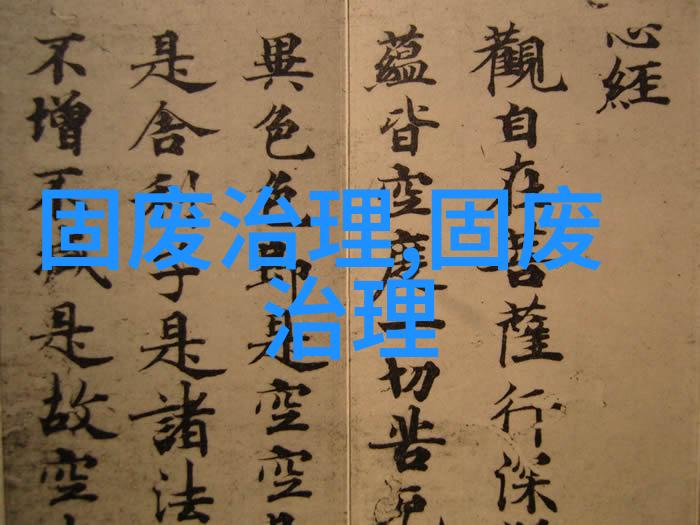 固废治理,固废
治理
心經
觀自在菩薩行深
蘊皆空度一切苦厄
異色色即是空空
是舍利子是諸法
不增不減是故空